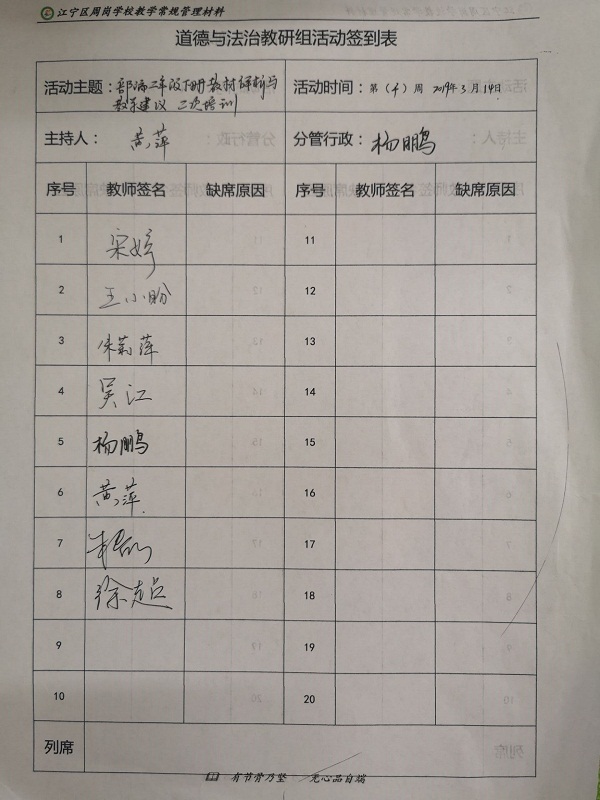 江宁区周岗学校教学常规管理材料
道德与法治教研组活动签到表
活动主题：部编二年级下册教材解析与
教学建议 二次培训
活动时间：第（4）周 2019年3月14日
主持人：黄萍
分管行政：杨鹏
序号 教师签名 缺席原因 序号 教师签名 缺席原因
1 宋婷 11
2 王小盼 12
3 朱菊萍 13
4 吴江 14
5 杨鹏 15
6 黄萍 16
7 17
8 徐超 18
9 19
10 20
列席
有节骨乃坚 无心品自端